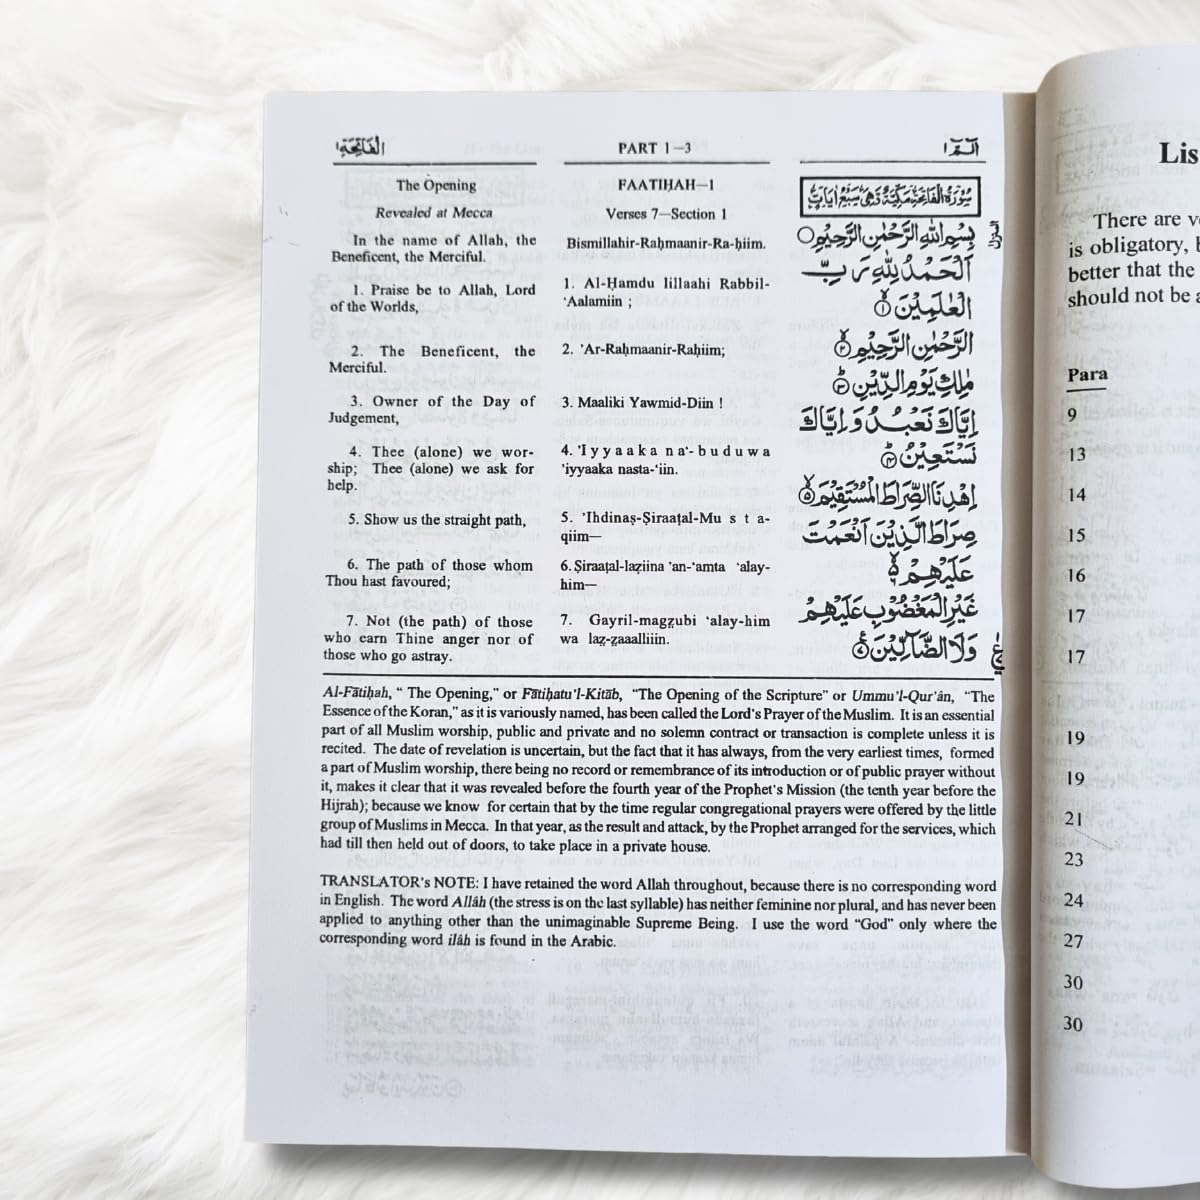 الفاتحة ١
PART 1–3
الٓمّٓ ١
The Opening
Revealed at Mecca
In the name of Allah, the
Beneficent, the Merciful.
1. Praise be to Allah, Lord
of the Worlds,
2. The Beneficent, the
Merciful.
3. Owner of the Day of
Judgement,
4. Thee (alone) we wor-
ship; Thee (alone) we ask for
help.
5. Show us the straight path,
6. The path of those whom
Thou hast favoured;
7. Not (the path) of those
who earn Thine anger nor of
those who go astray.
FAATIḤAH—1
Verses 7—Section 1
Bismillahir-Raḥmaanir-Ra-ḥiim.
1. Al-Ḥamdu lillaahi Rabbil-
‘Aalamiin ;
2. ’Ar-Raḥmaanir-Raḥiim;
3. Maaliki Yawmid-Diin !
4. ’Iyyaaka na‘- buduwa
’iyyaaka nasta-‘iin.
5. ’Ihdinaṣ-Ṣiraaṭal-Mu s t a-
qiim—
6. Ṣiraaṭal-laẓiina ’an-‘amta ‘alay-
him—
7. Gayril-magẓubi ‘alay-him
wa laẓ-ẓaaalliiin.
سُوْرَةُ الْفَاتِحَةِ مَكِّيَّةٌ وَّهِيَ سَبْعُ اٰيَاتٍ
بِسْمِ اللّٰهِ الرَّحْمٰنِ الرَّحِيْمِ
اَلْحَمْدُ لِلّٰهِ رَبِّ
الْعٰلَمِيْنَ ١
الرَّحْمٰنِ الرَّحِيْمِ ٢
مٰلِكِ يَوْمِ الدِّيْنِ ٣
اِيَّاكَ نَعْبُدُ وَ اِيَّاكَ
نَسْتَعِيْنُ ٤
اِهْدِنَا الصِّرَاطَ الْمُسْتَقِيْمَ ٥
صِرَاطَ الَّذِيْنَ اَنْعَمْتَ
عَلَيْهِمْ ٦
غَيْرِ الْمَغْضُوْبِ عَلَيْهِمْ
وَلَا الضَّآلِّيْنَ ٧
Al-Fātiḥah, “ The Opening,” or Fātiḥatu’l-Kitāb, “The Opening of the Scripture” or Ummu’l-Qur’ân, “The
Essence of the Koran,” as it is variously named, has been called the Lord's Prayer of the Muslim. It is an essential
part of all Muslim worship, public and private and no solemn contract or transaction is complete unless it is
recited. The date of revelation is uncertain, but the fact that it has always, from the very earliest times, formed
a part of Muslim worship, there being no record or remembrance of its introduction or of public prayer without
it, makes it clear that it was revealed before the fourth year of the Prophet's Mission (the tenth year before the
Hijrah); because we know for certain that by the time regular congregational prayers were offered by the little
group of Muslims in Mecca. In that year, as the result and attack, by the Prophet arranged for the services, which
had till then held out of doors, to take place in a private house.
TRANSLATOR's NOTE: I have retained the word Allah throughout, because there is no corresponding word
in English. The word Allâh (the stress is on the last syllable) has neither feminine nor plural, and has never been
applied to anything other than the unimaginable Supreme Being. I use the word “God” only where the
corresponding word ilâh is found in the Arabic.
Lis
There are
is obligatory,
better that the
should not be
Para
9
13
14
15
16
17
17
19
19
21
23
24
27
30
30